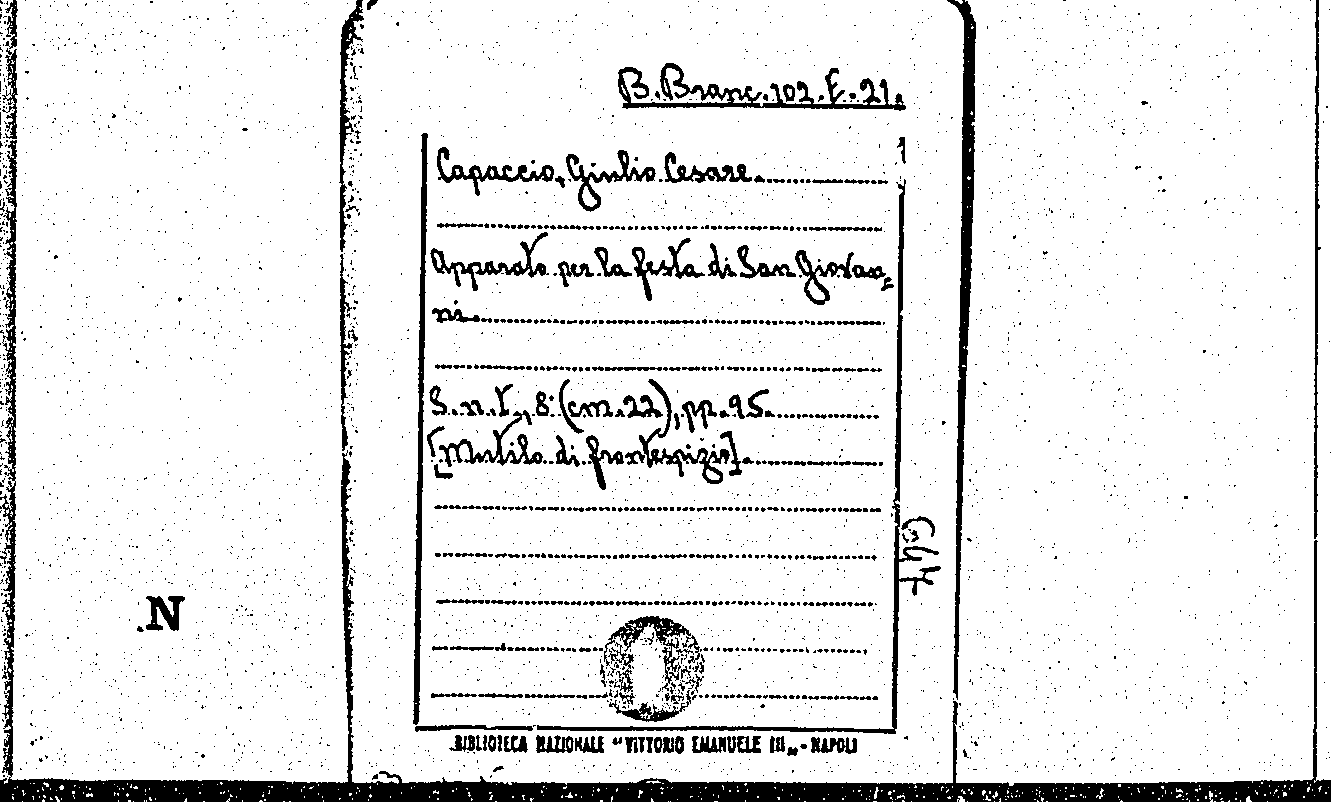 B. Branc. 102. E. 21.
Capaccio, Giulio Cesare.
Apparato per la festa di San Giovan=
ni.
S. n. t., 8° (cm. 22), pp. 95.
[Mutilo di frontespizio].
N
BIBLIOTECA NAZIONALE "VITTORIO EMANUELE III" - NAPOLI